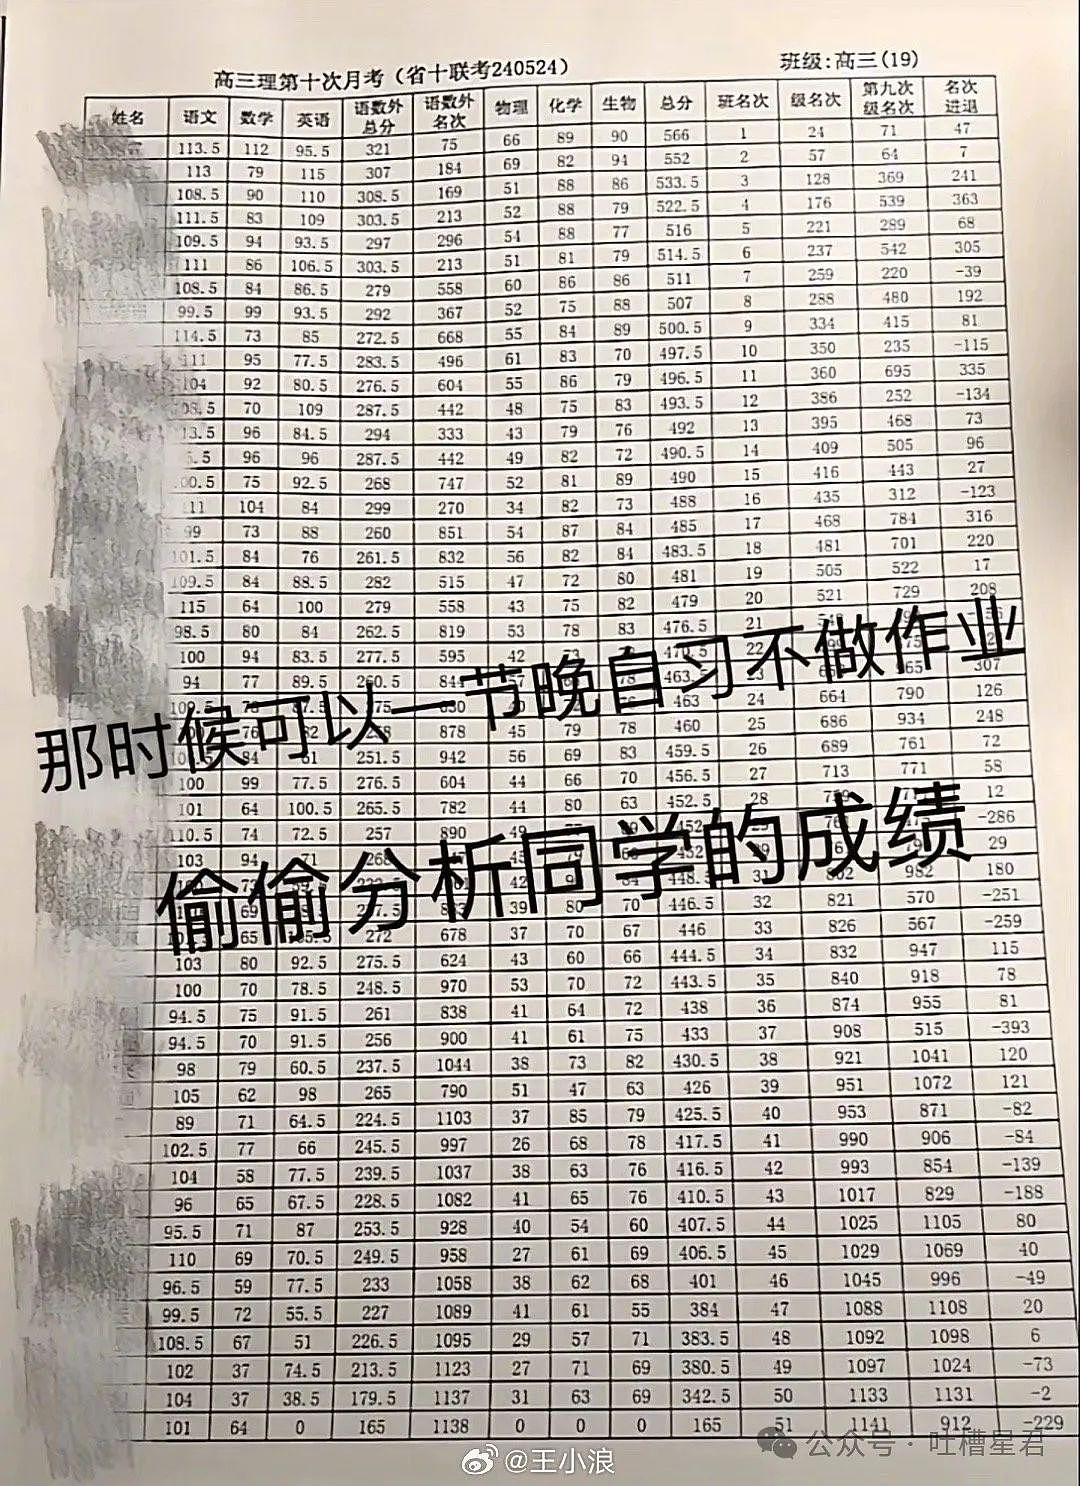 高三理第十次月考（省十联考240524） 班级:高三(19)
姓名 语文 数学 英语 语数外总分 语数外名次 物理 化学 生物 总分 班名次 级名次 第九次级名次 名次进退
113.5 112 95.5 321 75 66 89 90 566 1 24 71 47
113 79 115 307 184 69 82 94 552 2 57 64 7
108.5 90 110 308.5 169 51 88 86 533.5 3 128 369 241
111.5 83 109 303.5 213 52 88 79 522.5 4 176 539 363
109.5 94 93.5 297 296 54 88 77 516 5 221 289 68
111 86 106.5 303.5 213 51 81 79 514.5 6 237 542 305
108.5 84 86.5 279 558 60 86 86 511 7 259 220 -39
99.5 99 93.5 292 367 52 75 88 507 8 288 480 192
114.5 73 85 272.5 668 55 84 89 500.5 9 334 415 81
111 95 77.5 283.5 496 61 83 70 497.5 10 350 235 -115
104 92 80.5 276.5 604 55 86 79 496.5 11 360 695 335
70 109 287.5 442 48 75 83 493.5 12 386 252 -134
96 84.5 294 333 43 79 76 492 13 395 468 73
96 96 287.5 442 49 82 72 490.5 14 409 505 96
75 92.5 268 747 52 81 89 490 15 416 443 27
111 104 84 299 270 34 82 73 488 16 435 312 -123
99 73 88 260 851 54 87 84 485 17 468 784 316
101.5 84 76 261.5 832 56 82 84 483.5 18 481 701 220
109.5 84 88.5 282 515 47 72 80 481 19 505 522 17
115 64 100 279 558 43 75 82 479 20 521 729 208
98.5 80 84 262.5 819 53 78 83 476.5 21
100 94 83.5 277.5 595 42 22
94 77 89.5 260.5 463.5 23 307
463 24 664 790 126
878 45 79 78 460 25 686 934 248
251.5 942 56 69 83 459.5 26 689 761 72
100 99 77.5 276.5 604 44 66 70 456.5 27 713 771 58
101 64 100.5 265.5 782 44 80 63 452.5 28 12
110.5 74 72.5 257 890 49 -286
103 94 71 29
42 448.5 31 982 180
69 39 80 70 446.5 32 821 570 -251
65 272 678 37 70 67 446 33 826 567 -259
103 80 92.5 275.5 624 43 60 66 444.5 34 832 947 115
100 70 78.5 248.5 970 53 70 72 443.5 35 840 918 78
94.5 75 91.5 261 838 41 64 72 438 36 874 955 81
94.5 70 91.5 256 900 41 61 75 433 37 908 515 -393
98 79 60.5 237.5 1044 38 73 82 430.5 38 921 1041 120
105 62 98 265 790 51 47 63 426 39 951 1072 121
89 71 64.5 224.5 1103 37 85 79 425.5 40 953 871 -82
102.5 77 66 245.5 997 26 68 78 417.5 41 990 906 -84
104 58 77.5 239.5 1037 38 63 76 416.5 42 993 854 -139
96 65 67.5 228.5 1082 41 65 76 410.5 43 1017 829 -188
95.5 71 87 253.5 928 40 54 60 407.5 44 1025 1105 80
110 69 70.5 249.5 958 27 61 69 406.5 45 1029 1069 40
96.5 59 77.5 233 1058 38 62 68 401 46 1045 996 -49
99.5 72 55.5 227 1089 41 61 55 384 47 1088 1108 20
108.5 67 51 226.5 1095 29 57 71 383.5 48 1092 1098 6
102 37 74.5 213.5 1123 27 71 69 380.5 49 1097 1024 -73
104 37 38.5 179.5 1137 31 63 69 342.5 50 1133 1131 -2
101 64 0 165 1138 0 0 0 165 51 1141 912 -229
那时候可以一节晚自习不做作业
偷偷分析同学的成绩
@王小浪
公众号·吐槽星君